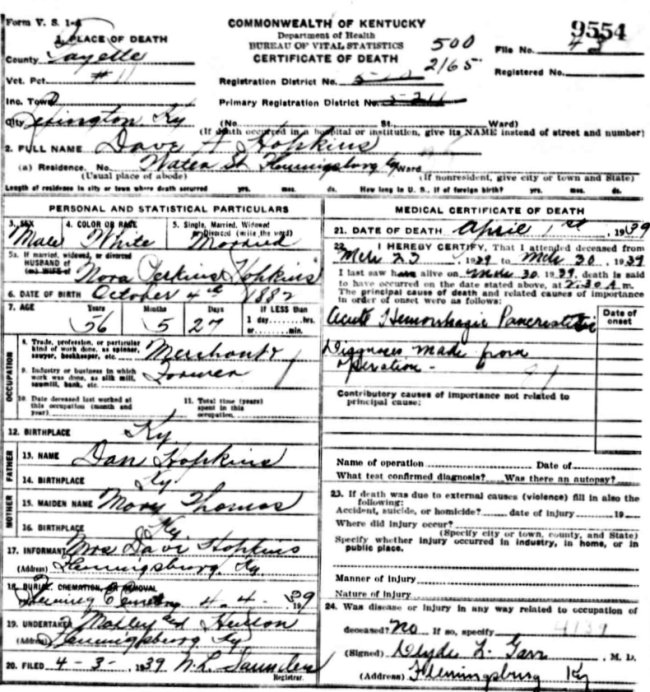 Form V. S. 1-A
COMMONWEALTH OF KENTUCKY
Department of Health
BUREAU OF VITAL STATISTICS
CERTIFICATE OF DEATH
500
2165
9554
File No. 43
Registered No.
1. PLACE OF DEATH
County Fayette
Vot. Pct. #11
Inc. Town
City Lexington, Ky
Registration District No.
Primary Registration District No.
(No. St. Ward)
(If death occurred in a hospital or institution, give its NAME instead of street and number)
2. FULL NAME Dave A Hopkins
(a) Residence. No. Water St Flemingsburg Ky Ward
(Usual place of abode) (If nonresident, give city or town and State)
Length of residence in city or town where death occurred yrs. mos. ds. How long in U. S., if of foreign birth? yrs. mos. ds.
PERSONAL AND STATISTICAL PARTICULARS
3. SEX 4. COLOR OR RACE 5. Single, Married, Widowed
or Divorced (write the word)
Male White Married
5a. If married, widowed, or divorced
HUSBAND of
(or) WIFE of Nora Perkins Hopkins
6. DATE OF BIRTH October 4th 1882
7. AGE Years Months Days If LESS than
56 5 27 1 day hrs.
or min.
OCCUPATION
8. Trade, profession, or particular
kind of work done, as spinner,
sawyer, bookkeeper, etc. Merchant &
9. Industry or business in which
work was done, as silk mill,
sawmill, bank, etc. Farmer
10. Date deceased last worked at
this occupation (month and
year)
11. Total time (years)
spent in this
occupation.
12. BIRTHPLACE Ky
FATHER
13. NAME Dan Hopkins
14. BIRTHPLACE Ky.
MOTHER
15. MAIDEN NAME Mary Thomas
16. BIRTHPLACE Ky.
17. INFORMANT Mrs Dave Hopkins
(Address) Flemingsburg, Ky
18. BURIAL, CREMATION, OR REMOVAL
Fleming Cemetery 4-4- 1939
19. UNDERTAKER
(Address) Flemingsburg Ky
20. FILED 4-3-, 1939 N.L. Saunders
Registrar.
MEDICAL CERTIFICATE OF DEATH
21. DATE OF DEATH April 1st, 1939
22. I HEREBY CERTIFY, That I attended deceased from
Mch 23, 1939 to Mch 30, 1939
I last saw him alive on Mch 30 1939, death is said
to have occurred on the date stated above, at 2:30 A m.
The principal cause of death and related causes of importance
in order of onset were as follows:
Date of
onset
Acute Hemorrhagic Pancreatitis
Diagnoses made from
operation -
Contributory causes of importance not related to
principal cause:
Name of operation Date of
What test confirmed diagnosis? Was there an autopsy?
23. If death was due to external causes (violence) fill in also the
following:
Accident, suicide, or homicide? date of injury 19
Where did injury occur?
(Specify city or town, county, and State)
Specify whether injury occurred in industry, in home, or in
public place.
Manner of injury
Nature of injury
24. Was disease or injury in any way related to occupation of
deceased? No If so, specify 4139
(Signed) Clyde L. Garr, M. D.
(Address) Flemingsburg Ky